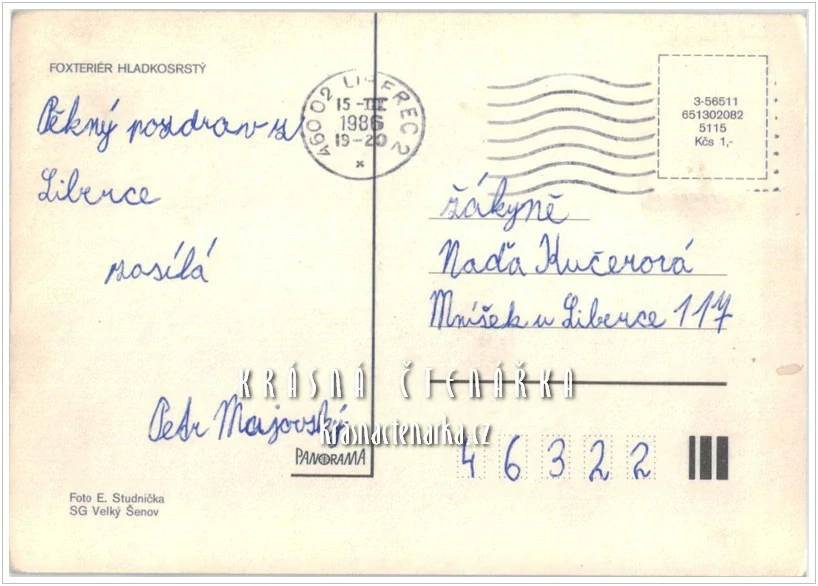 FOXTERIÉR HLADKOSRSTÝ
Pěkný pozdrav z
Liberce
zasílá
Petr Majovský
Foto E. Studnička
SG Velký Šenov
PANORAMA
460 02 LIBEREC 2
15 -III
1986
19-20
3-56511
651302082
5115
Kčs 1,-
žákyně
Naďa Kučerová
Mníšek u Liberce 117
46322
KRÁSNÁ ČTENÁŘKA
krasnactenarka.cz